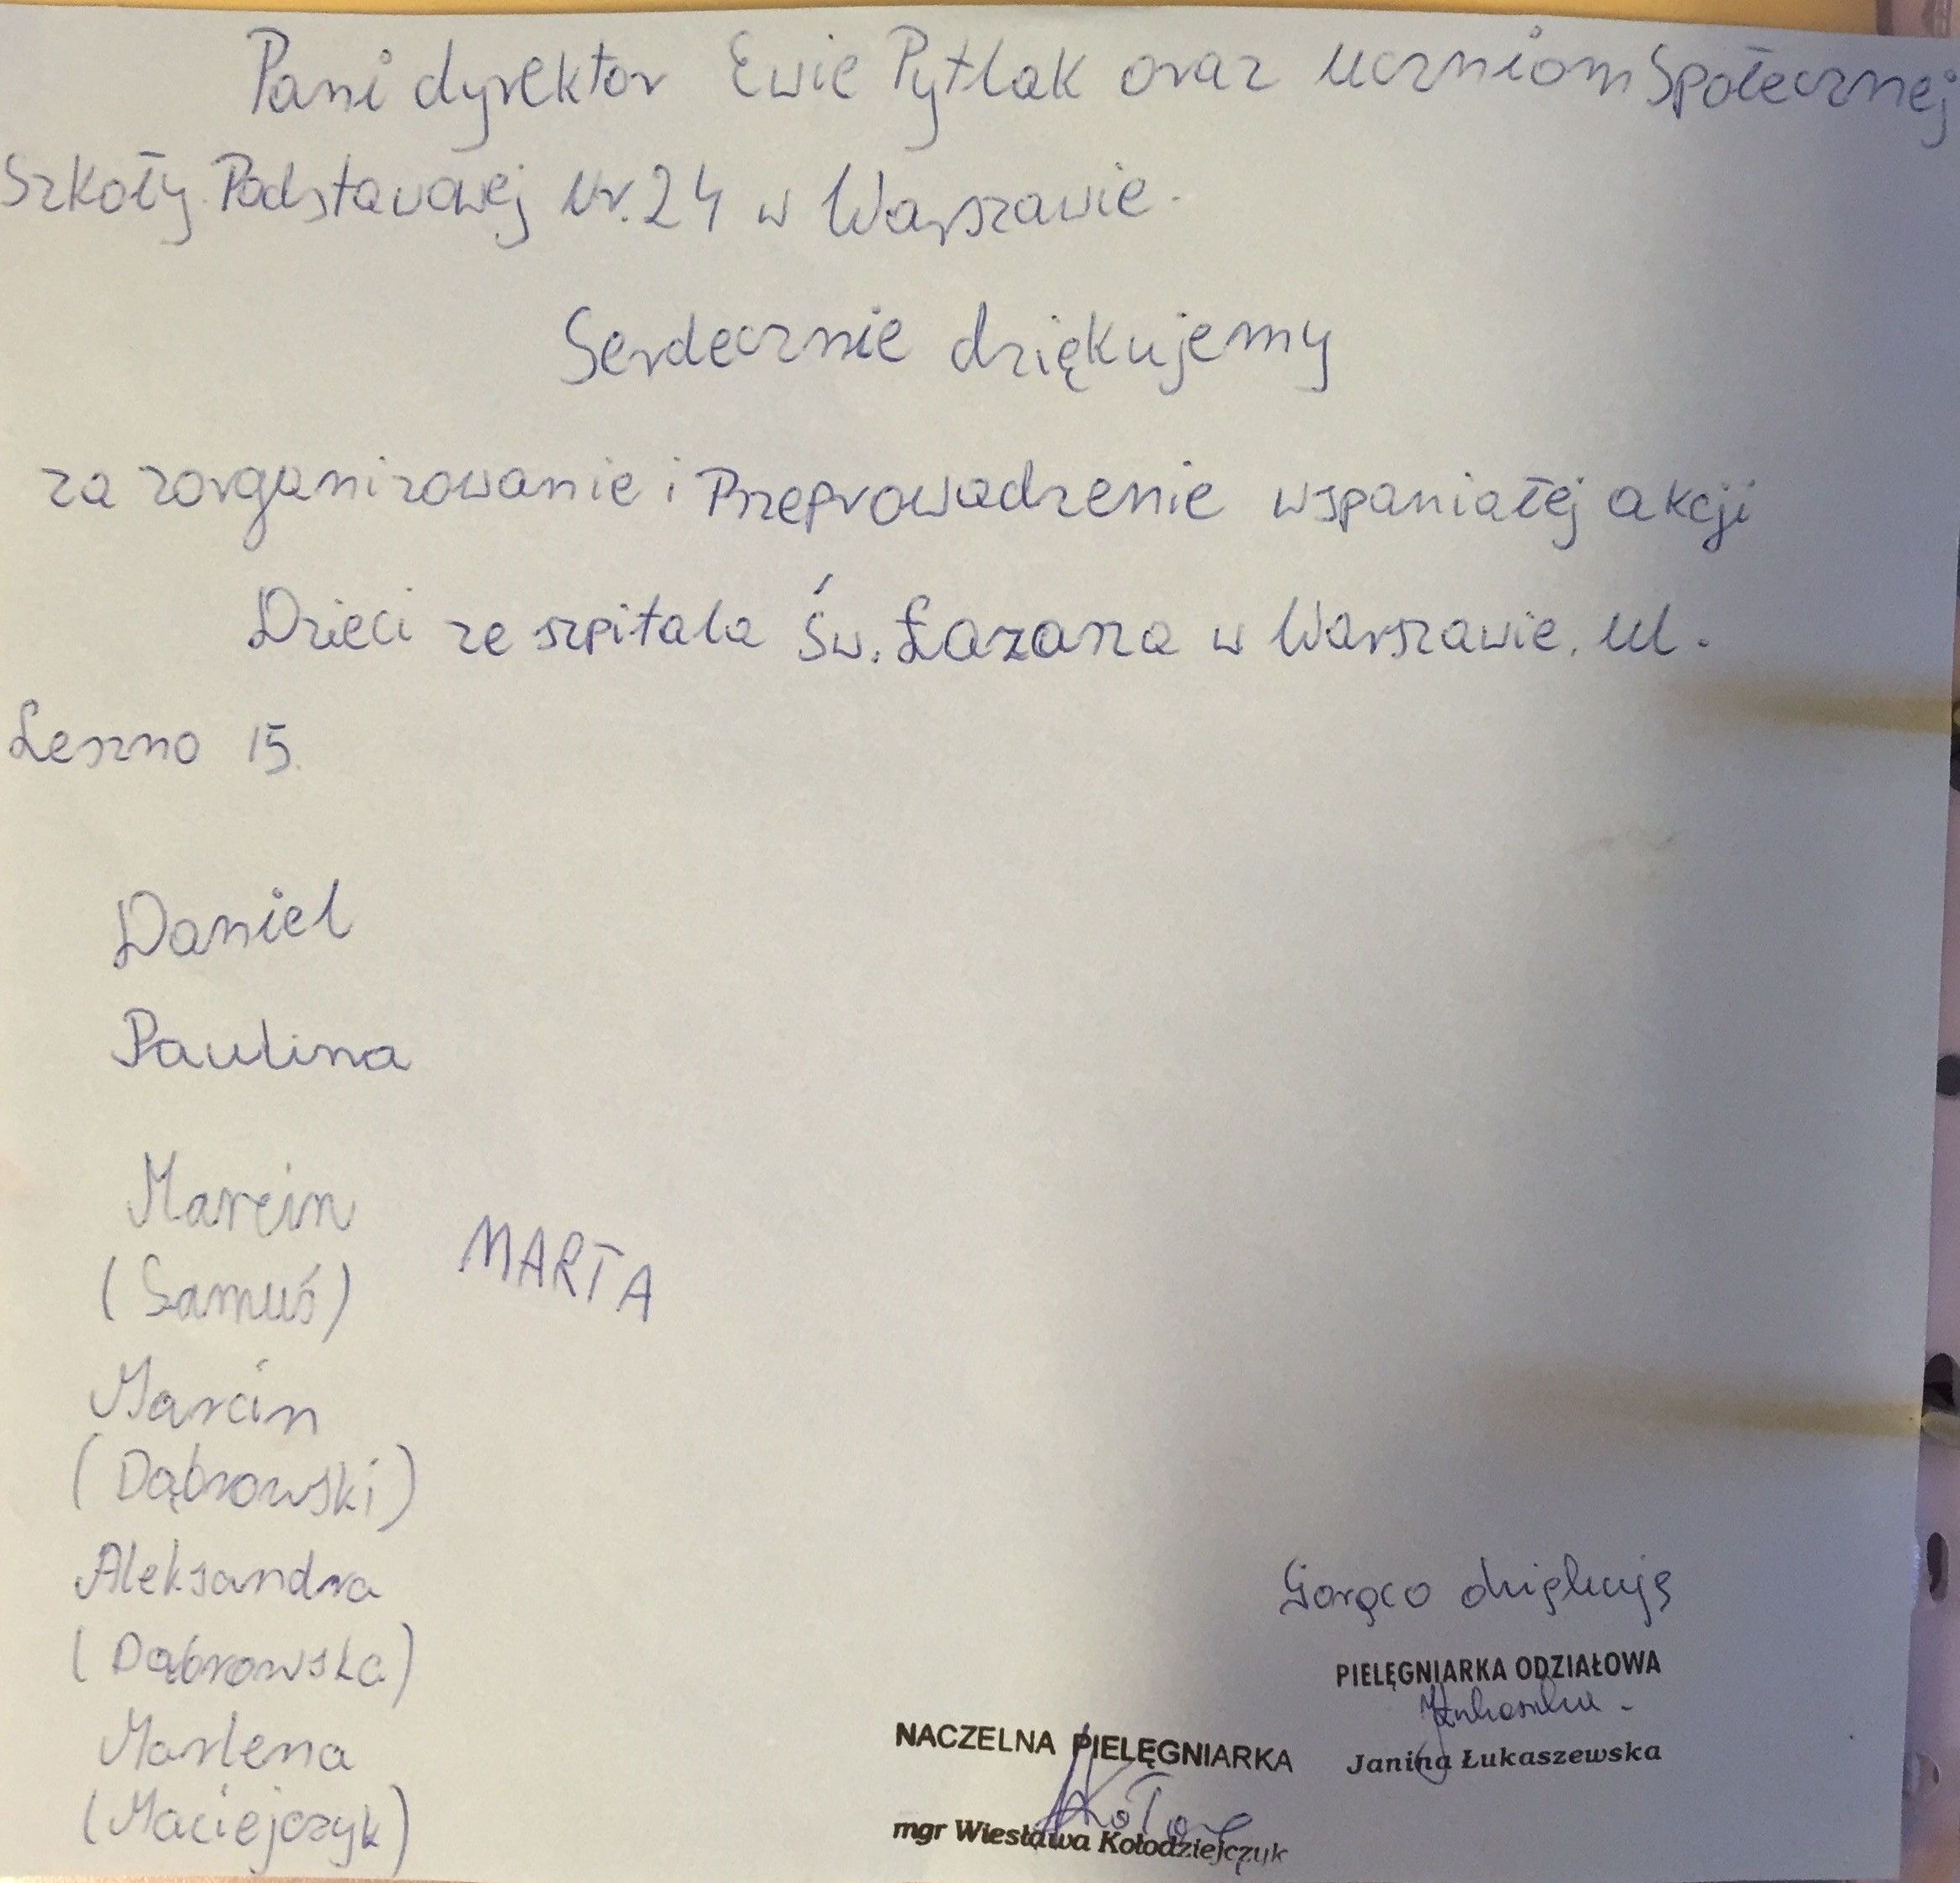 Pani dyrektor Ewie Pytlak oraz uczniom Społecznej
Szkoły Podstawowej Nr. 24 w Warszawie.
Serdecznie dziękujemy
za zorganizowanie i Przeprowadzenie wspaniałej akcji
Dzieci ze szpitala Św. Łazarza w Warszawie, ul.
Leszno 15.
Daniel
Paulina
Marcin
(Samuś)
MARTA
Marcin
(Dąbrowski)
Aleksandra
(Dąbrowska)
Marlena
(Maciejczyk)
Gorąco dziękuję
PIELĘGNIARKA ODZIAŁOWA
Janina Łukaszewska
NACZELNA PIELĘGNIARKA
mgr Wiesława Kołodziejczyk